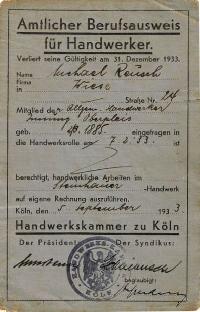 Amtlicher Berufsausweis
für Handwerker.
Verliert seine Gültigkeit am 31. Dezember 1933.
Name Michael Reusch
Firma
in Wiese
Straße Nr. 24
Mitglied der Allgem. Handwerker
innung Oberpleis
geb. 1885. eingetragen in
die Handwerksrolle am 7.2.33.
berechtigt, handwerkliche Arbeiten im
Steinhauer-Handwerk
auf eigene Rechnung auszuführen.
Köln, den 5. September 1933
Handwerkskammer zu Köln
Der Präsident: Der Syndikus:
beglaubigt:
KÖLN